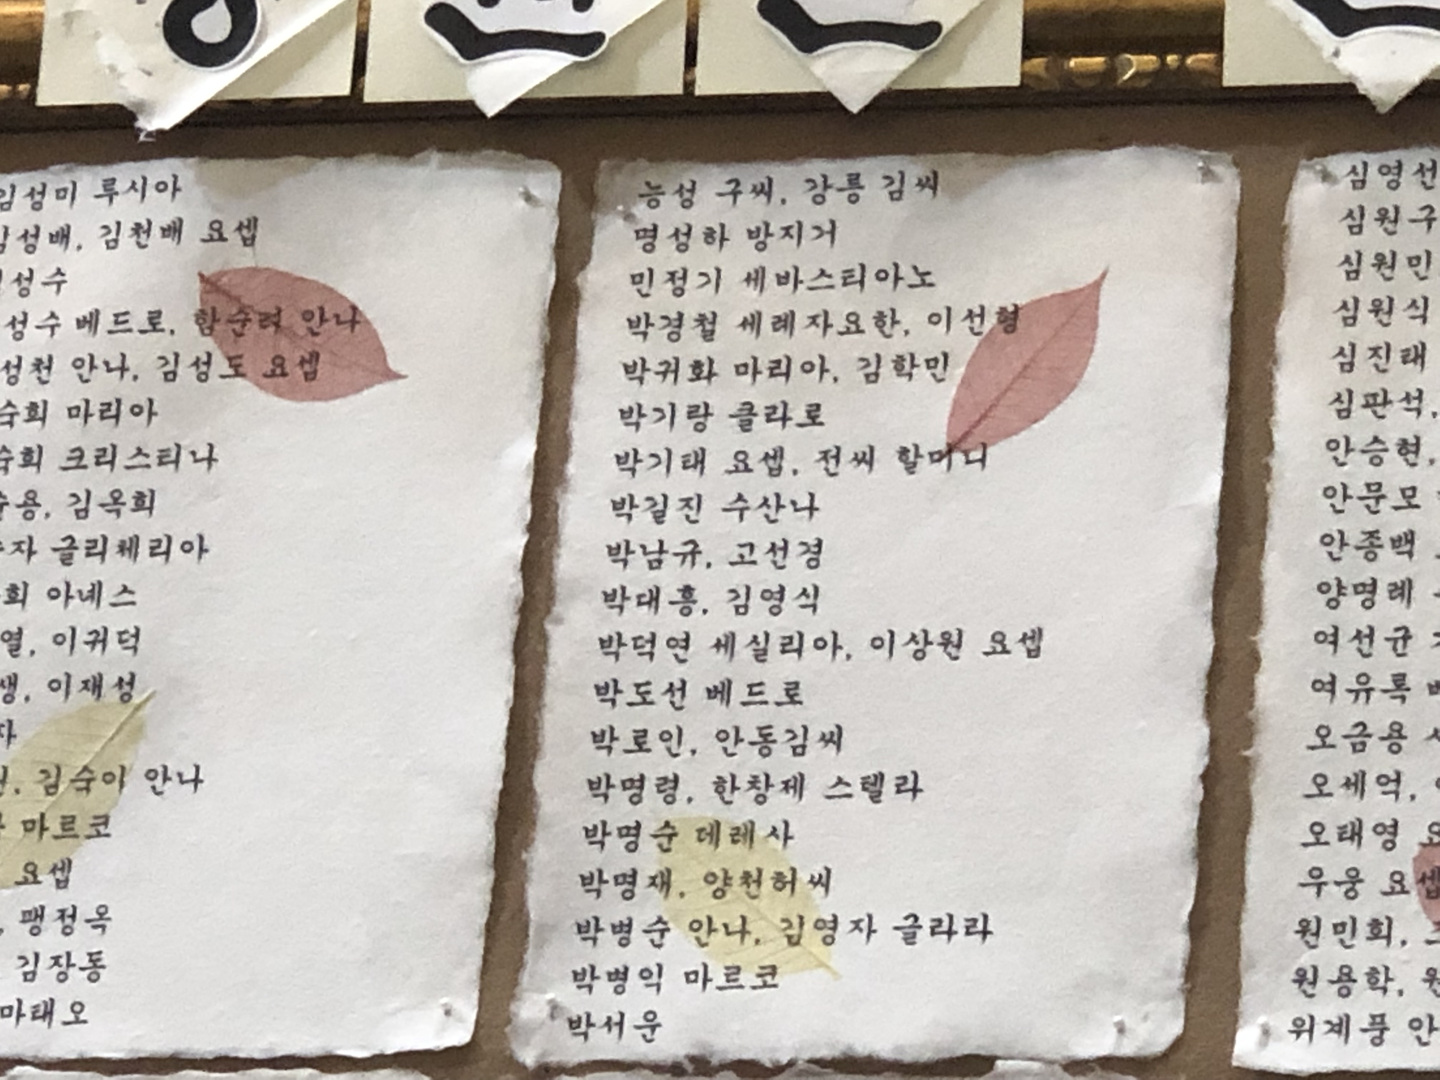 임성미 루시아
김성배, 김천배 요셉
성수
성수 베드로, 함순려 안나
성천 안나, 김성도 요셉
숙희 마리아
숙희 크리스티나
김옥희
글리체리아
아녜스
이귀덕
이재성
김숙이 안나
마르코
요셉
팽정옥
김장동
마태오
능성 구씨, 강릉 김씨
명성하 방지거
민정기 세바스티아노
박경철 세례자요한, 이선형
박귀화 마리아, 김학민
박기랑 클라로
박기태 요셉, 전씨 할머니
박길진 수산나
박남규, 고선경
박대흥, 김영식
박덕연 세실리아, 이상원 요셉
박도선 베드로
박로인, 안동김씨
박명령, 한창제 스텔라
박명순 데레사
박명재, 양천허씨
박병순 안나, 김영자 글라라
박병익 마르코
박서운
심영선
심원구
심원민
심원식
심진태
심판석,
안승현,
안문모
안종백
양명례
여선균
여유록
오금용
오세억,
오태영
우웅 요셉
원민희,
원용학,
위계풍